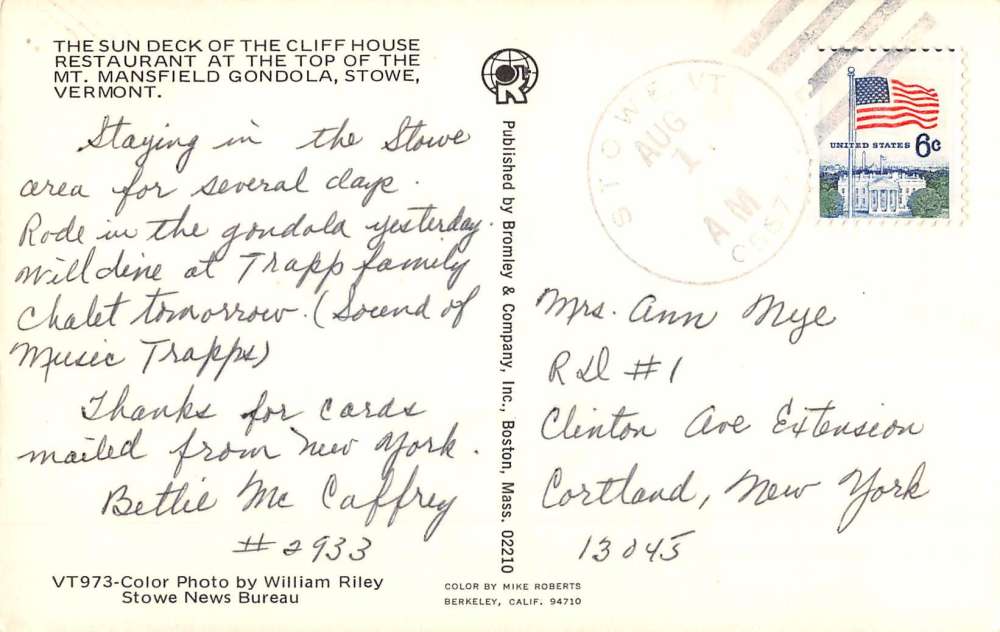 THE SUN DECK OF THE CLIFF HOUSE
RESTAURANT AT THE TOP OF THE
MT. MANSFIELD GONDOLA, STOWE,
VERMONT.
Staying in the Stowe
area for several days.
Rode in the gondola yesterday.
Will dine at Trapp family
Chalet tomorrow. (Sound of
Music Trapps)
Thanks for cards
mailed from New York.
Bettie Mc Caffrey
#2933
VT973-Color Photo by William Riley
Stowe News Bureau
Published by Bromley & Company, Inc., Boston, Mass. 02210
COLOR BY MIKE ROBERTS
BERKELEY, CALIF. 94710
STOWE, VT
AUG
1
AM
UNITED STATES 6c
Mrs. Ann Nye
RD #1
Clinton Ave Extension
Cortland, New York
13045